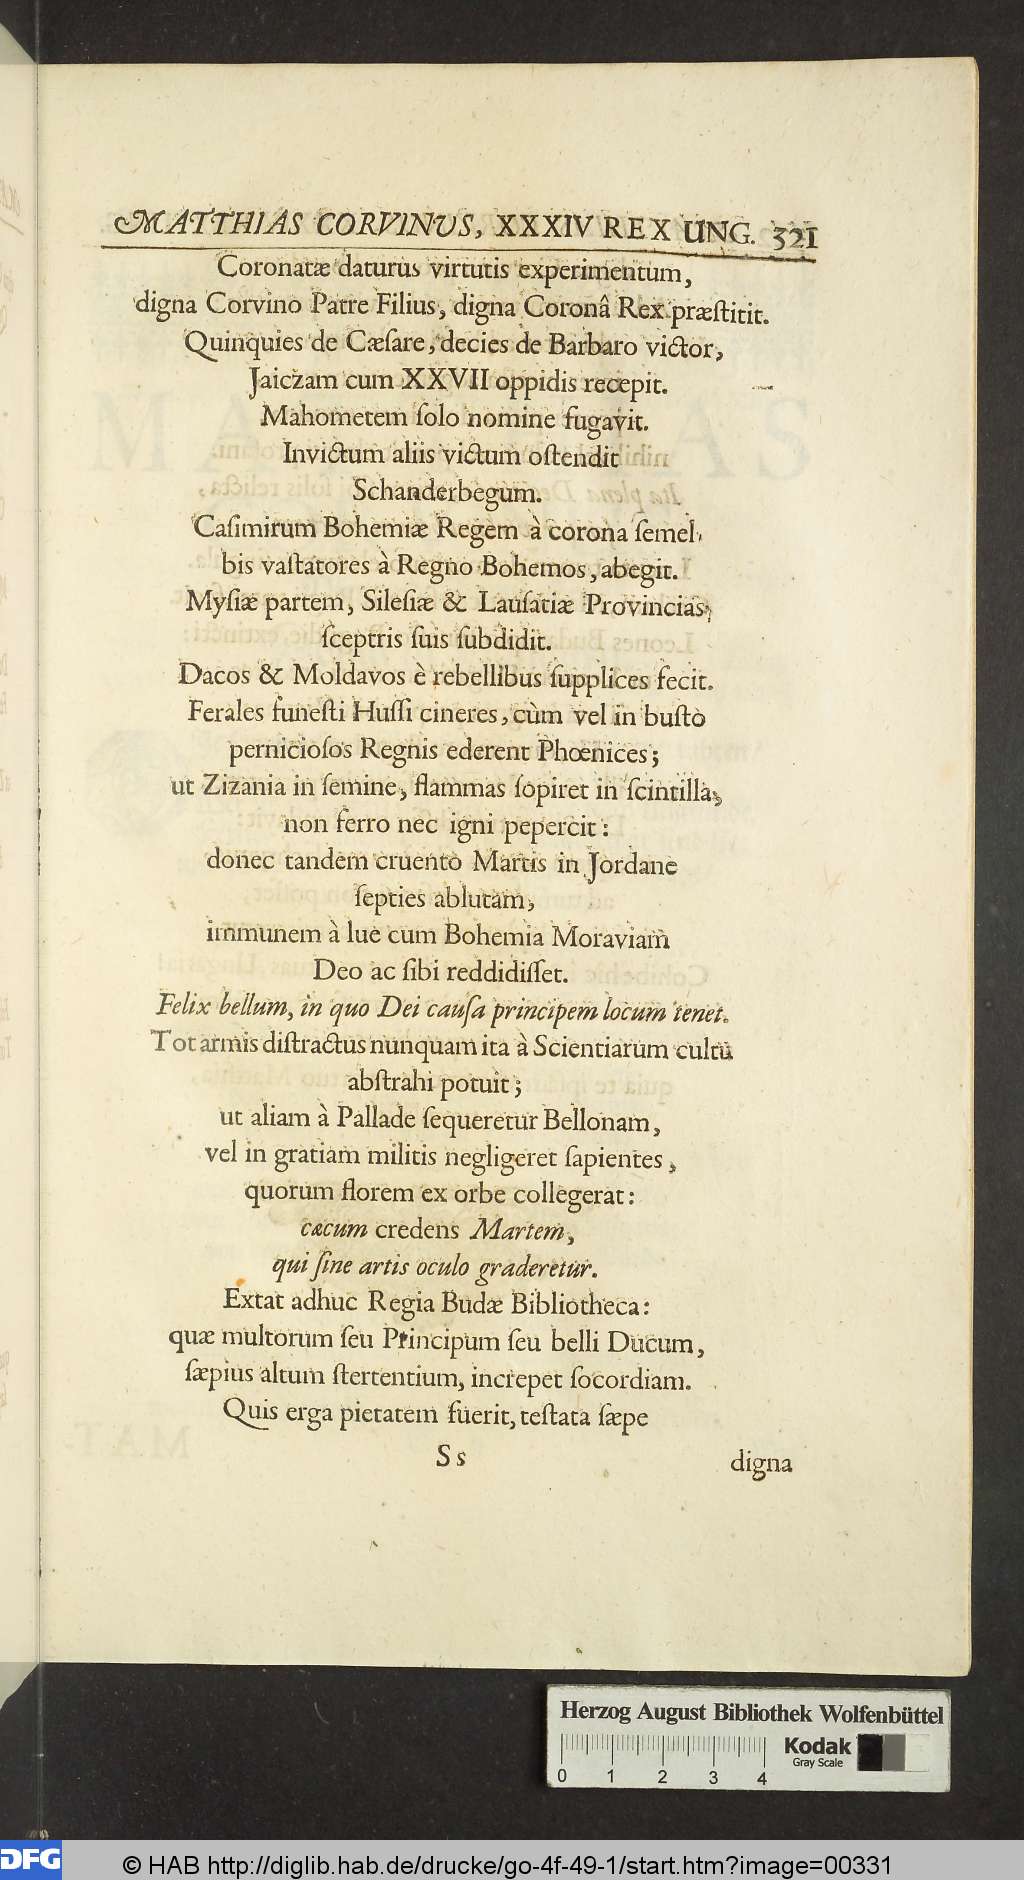 MATTHIAS CORVINUS, XXXIV REX UNG. 321
Coronatæ daturus virtutis experimentum,
digna Corvino Patre Filius, digna Coronâ Rex præſtitit.
Quinquies de Cæſare, decies de Barbaro victor,
Jaiczam cum XXVII oppidis recepit.
Mahometem ſolo nomine fugavit.
Invictum aliis victum oſtendit
Schanderbegum.
Caſimirum Bohemiæ Regem à corona ſemel,
bis vaſtatores à Regno Bohemos, abegit.
Myſiæ partem, Sileſiæ & Lauſatiæ Provincias,
ſceptris ſuis ſubdidit.
Dacos & Moldavos è rebellibus ſupplices fecit.
Ferales funeſti Huſſi cineres, cùm vel in buſto
pernicioſos Regnis ederent Phœnices;
ut Zizania in ſemine, flammas ſopiret in ſcintilla,
non ferro nec igni pepercit:
donec tandem cruento Martis in Jordane
ſepties ablutam,
immunem à lue cum Bohemia Moraviam
Deo ac ſibi reddidiſſet.
Felix bellum, in quo Dei cauſa principem locum tenet.
Tot armis diſtractus nunquam ita à Scientiarum cultu
abſtrahi potuit;
ut aliam à Pallade ſequeretur Bellonam,
vel in gratiam militis negligeret ſapientes,
quorum florem ex orbe collegerat:
cæcum credens Martem,
qui ſine artis oculo graderetur.
Extat adhuc Regia Budæ Bibliotheca:
quæ multorum ſeu Principum ſeu belli Ducum,
ſæpius altum ſtertentium, increpet ſocordiam.
Quis erga pietatem fuerit, teſtata ſæpe
S s
digna
Herzog August Bibliothek Wolfenbüttel
Kodak
Gray Scale
0 1 2 3 4
DFG
© HAB http://diglib.hab.de/drucke/go-4f-49-1/start.htm?image=00331